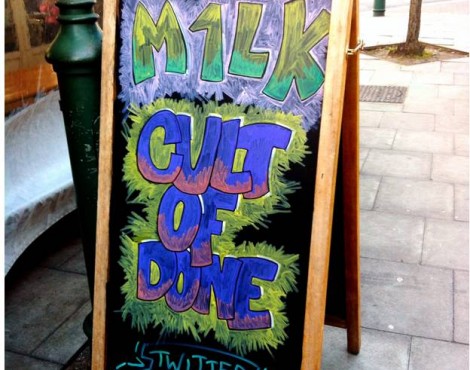 M1LK
CULT
OF
DONE
TWITTER